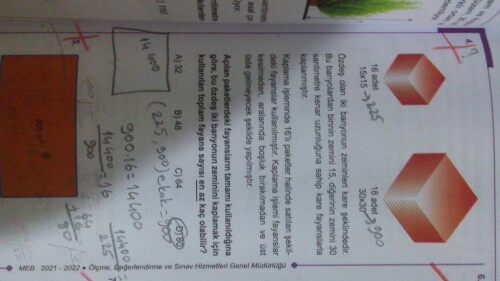 16 adet
15x15 → 225
16 adet
30x30 → 900
Özdeş olan iki banyonun zeminleri kare şeklindedir.
Bu banyolardan birinin zemini 15, diğerinin zemini 30
santimetre kenar uzunluğuna sahip kare fayanslarla
kaplanmıştır.
Kaplama işleminde 16'lı paketler halinde satılan şekil-
deki fayanslar kullanılmıştır. Kaplama işlemi fayanslar
kesilmeden, aralarında boşluk bırakılmadan ve üst
üste gelmeyecek şekilde yapılmıştır.
Açılan paketlerdeki fayansların tamamı kullanıldığına
göre, bu özdeş iki banyonun zeminini kaplamak için
kullanılan toplam fayans sayısı en az kaç olabilir?
A) 32 B) 48 C) 64 D) 80
(225, 900) ekok = 900
900.16 = 14400
14400
14400
900
= 16
14400
225
64
+ 16
80
MEB 2021 - 2022 ● Ölçme, Değerlendirme ve Sınav Hizmetleri Genel Müdürlüğü